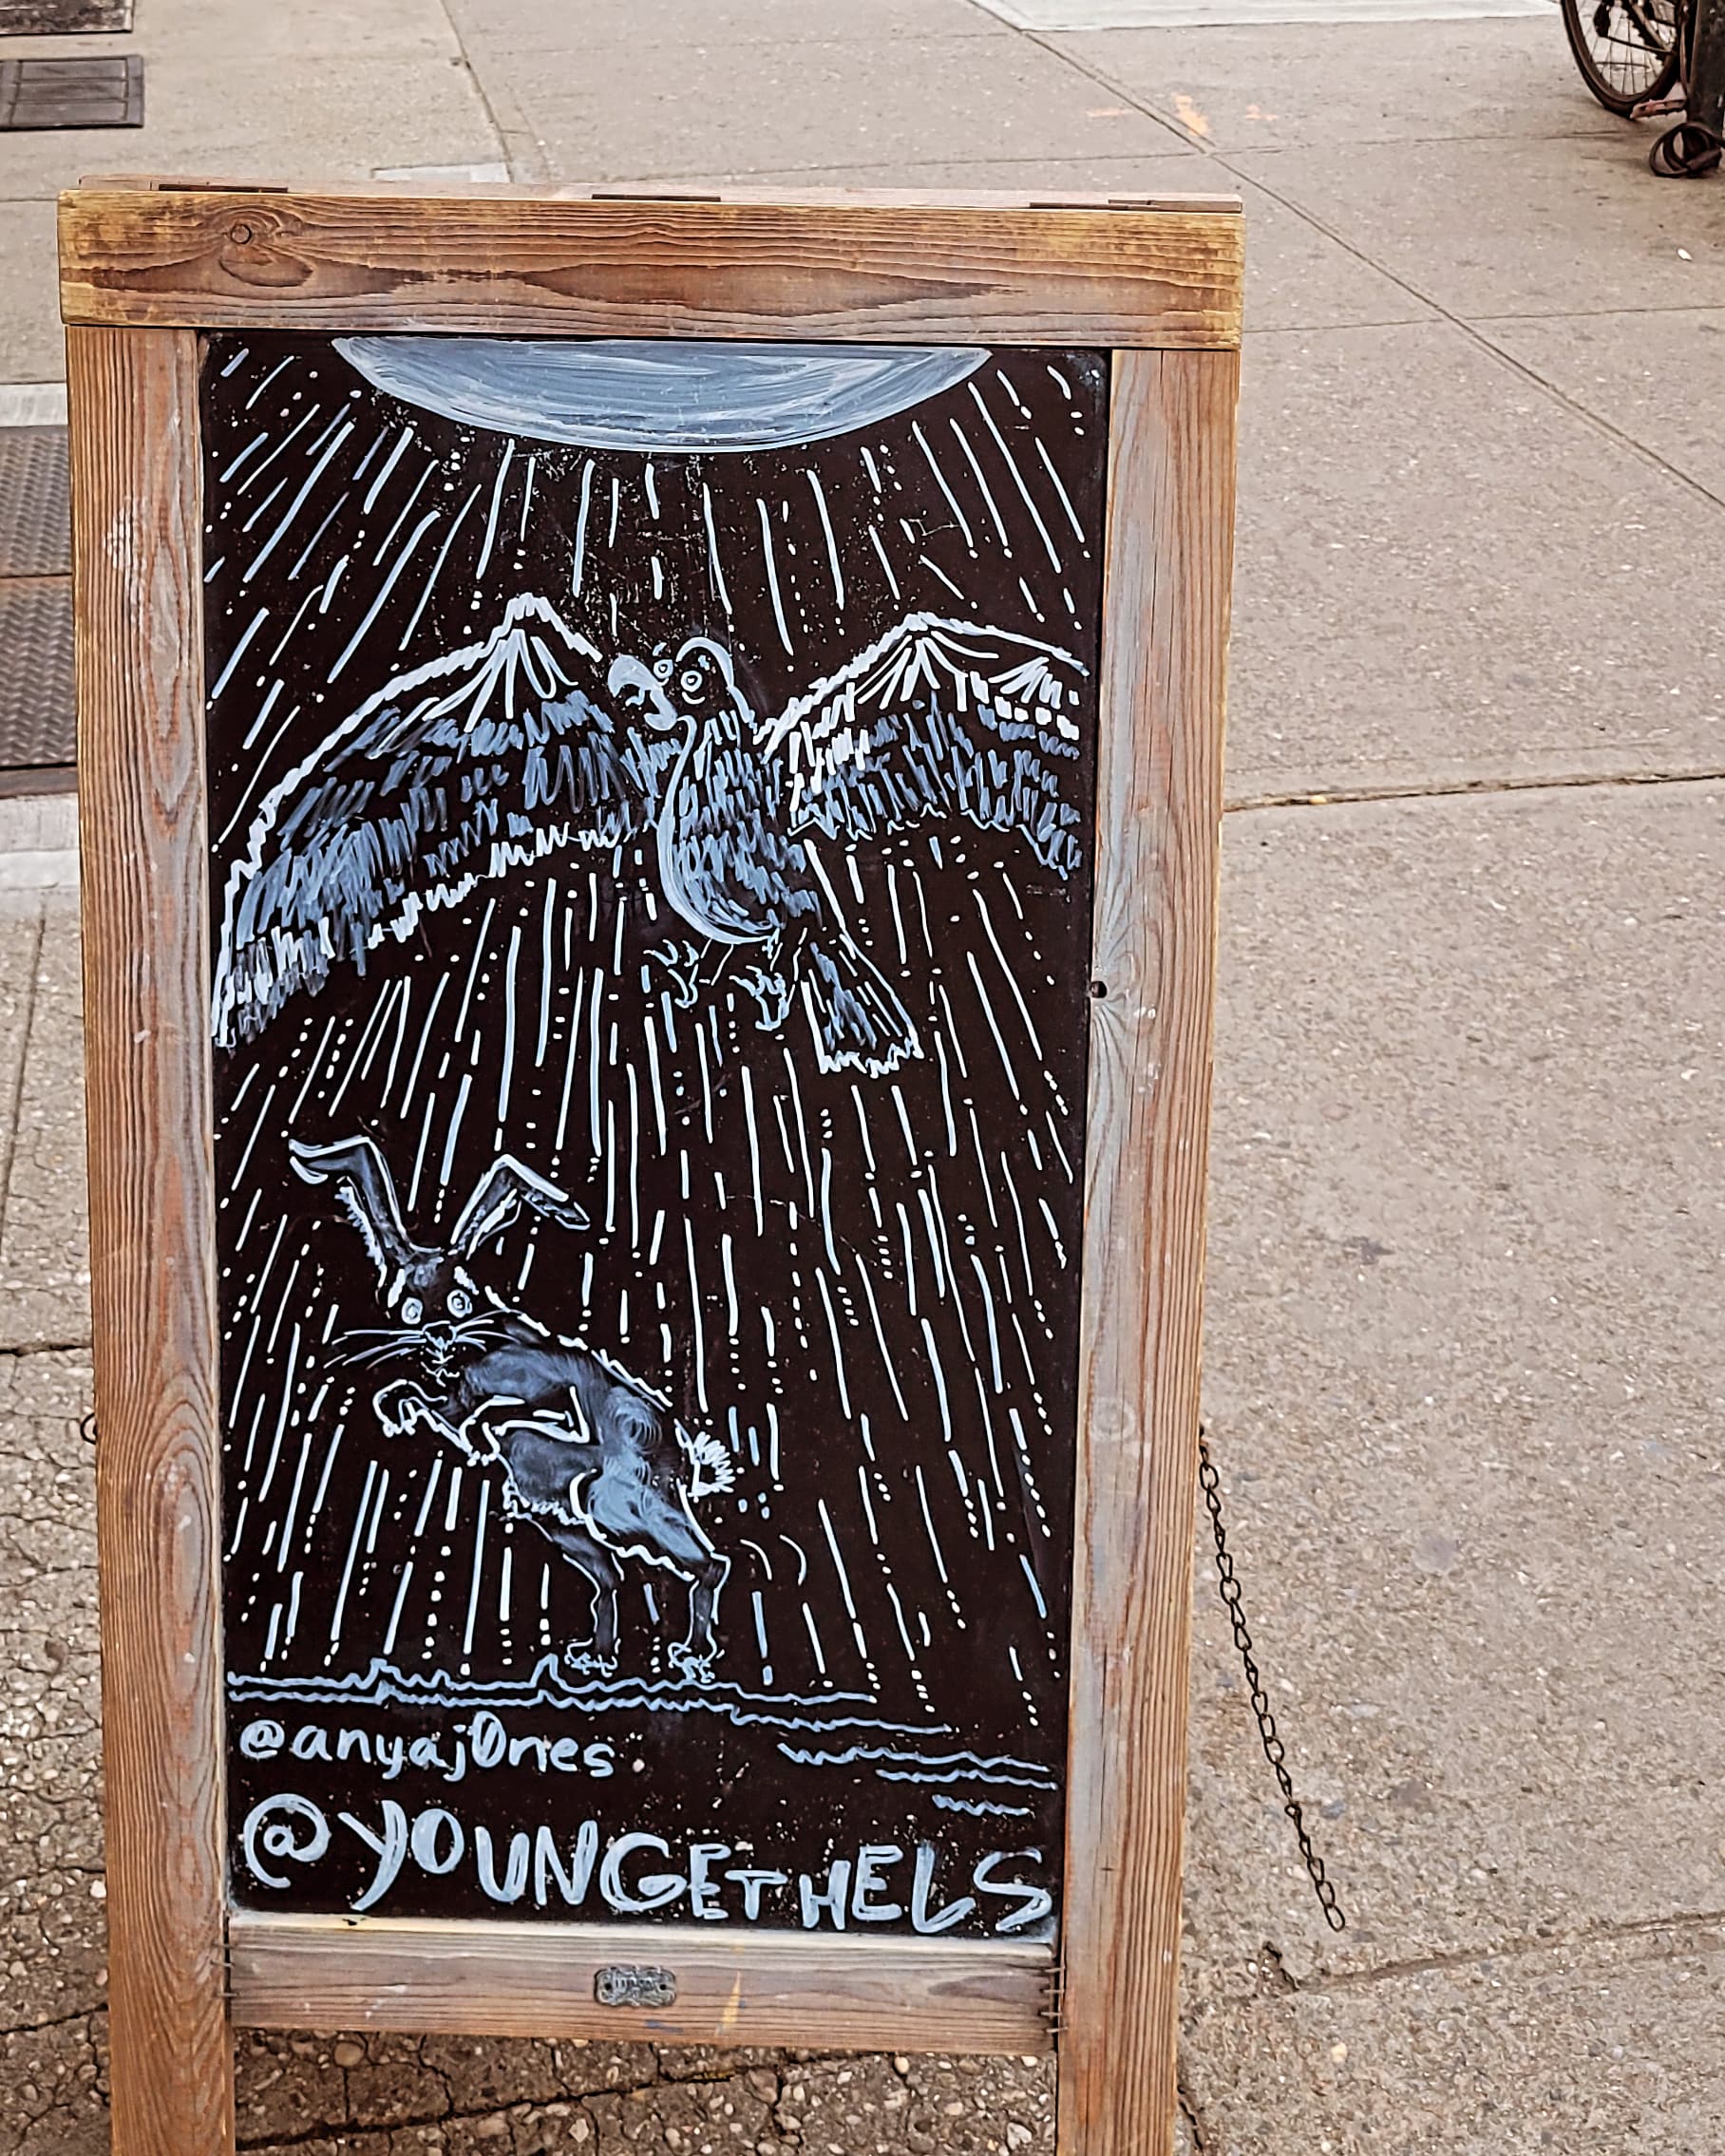 @anyaj0nes
@YOUNGETHELS